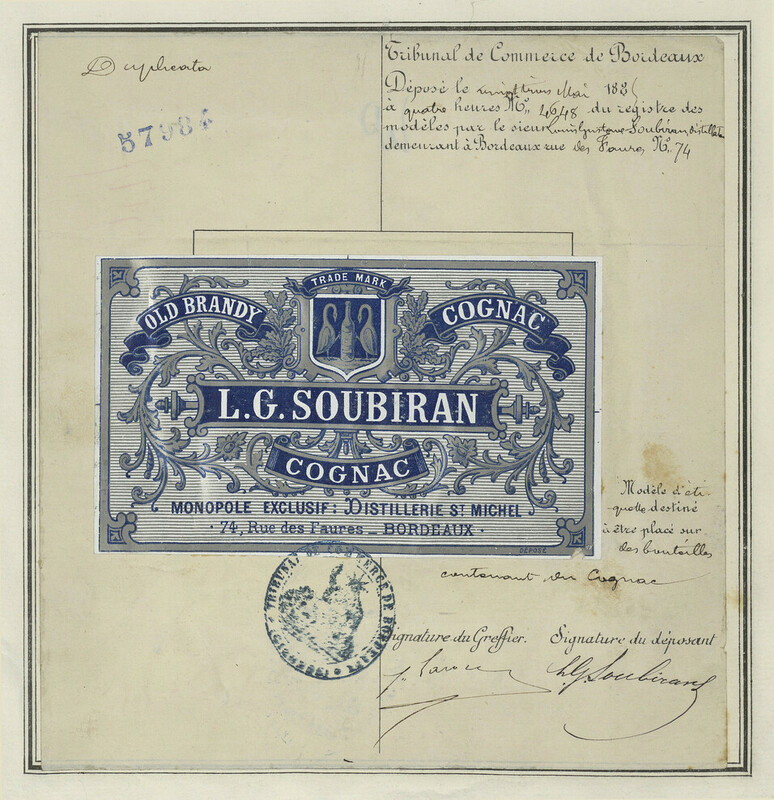 Duplicata
Tribunal de Commerce de Bordeaux
Déposé le vingt trois Mai 188
à quatre heures No. 4648 du registre des
modèles par le sieur Louis Gustave Soubiran Distillateur
demeurant à Bordeaux rue des Faures No. 74
57984
TRADE MARK
OLD BRANDY
COGNAC
L.G. SOUBIRAN
COGNAC
MONOPOLE EXCLUSIF: DISTILLERIE ST MICHEL
74, Rue des Faures _ BORDEAUX
DÉPOSÉ
Modèle d'éti-
quette destiné
à être placé sur
des bouteilles
contenant du Cognac
TRIBUNAL DE COMMERCE DE BORDEAUX
Signature du Greffier. Signature du déposant
L.G. Soubiran